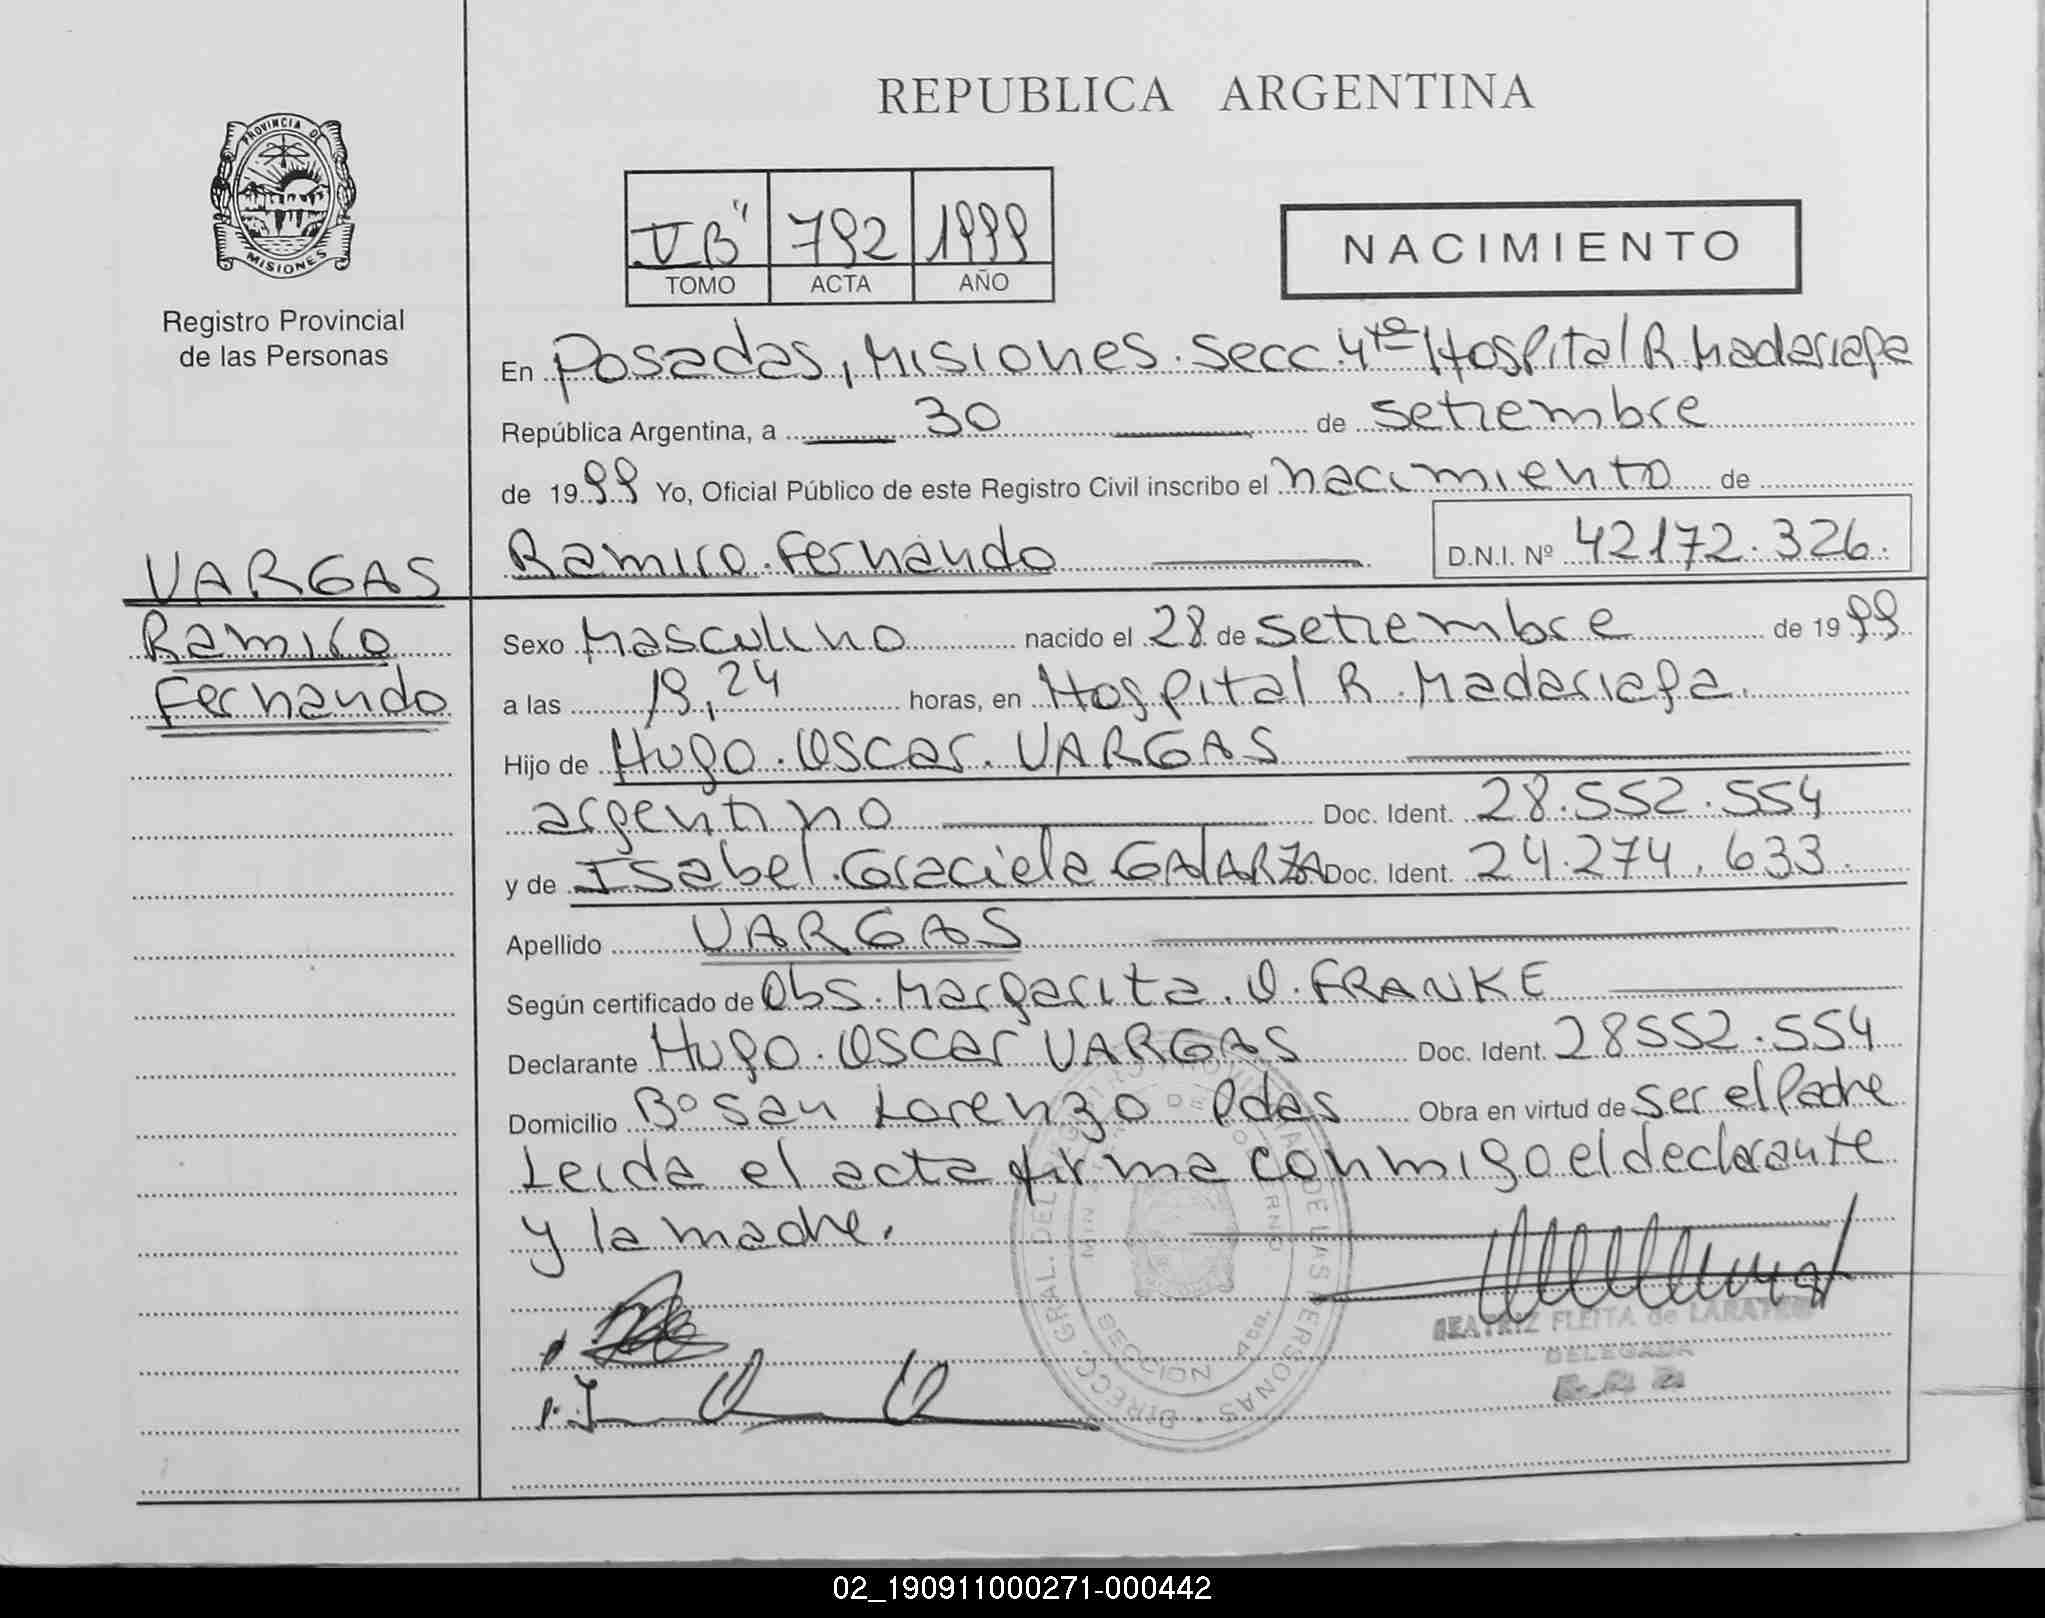 REPUBLICA ARGENTINA
PROVINCIA DE
MISIONES
Registro Provincial
de las Personas
V B" 792 1999
TOMO ACTA AÑO
NACIMIENTO
En Posadas, Misiones. Secc. 4ta Hospital R. Madariaga
República Argentina, a 30 de setiembre
de 1999 Yo, Oficial Público de este Registro Civil inscribo el nacimiento de
Ramiro Fernando D.N.I. Nº 42172.326.
VARGAS
Ramiro
Fernando
Sexo Masculino nacido el 28 de setiembre de 1999
a las 19,24 horas, en Hospital R. Madariaga.
Hijo de Hugo Oscar VARGAS
argentino Doc. Ident. 28.552.554
y de Isabel Graciela GALARZA Doc. Ident. 24.274.633.
Apellido VARGAS
Según certificado de Obs. Margarita O. FRANKE
Declarante Hugo Oscar VARGAS Doc. Ident. 28552.554
Domicilio Bº San Lorenzo Pdas Obra en virtud de ser el Padre
Leida el acta firma conmigo el declarante
y la madre.
BEATRIZ FLEITA de
DELEGADA
DIRECC. GRAL. DEL REGISTRO PROVINCIAL DE LAS PERSONAS
SECCION 4ta.
02_190911000271-000442